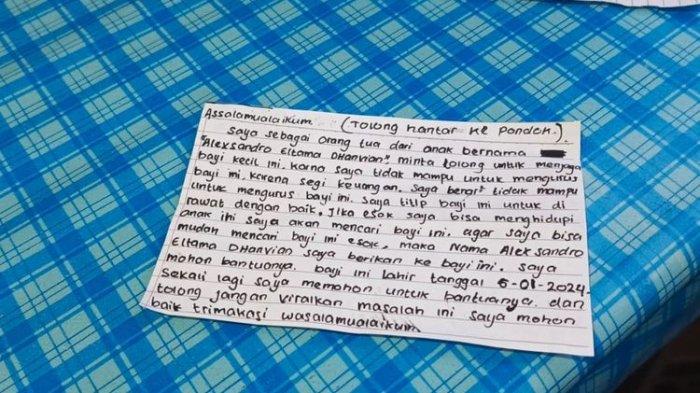 Assalamualaikum. (Tolong hantar ke Pondok.).
Saya sebagai orang tua dari anak bernama
"Alexsandro Eltama DHanvian" minta tolong untuk menjaga
bayi kecil ini. Karna saya tidak mampu untuk mengurus
bayi ini. Karena segi keuangan. Saya benar² tidak mampu
untuk mengurus bayi ini. Saya titip bayi ini untuk di
rawat dengan baik. Jika esok saya bisa menghidupi
anak ini saya akan mencari bayi ini. agar saya bisa
mudah mencari bayi ini esok. maka Nama Alexsandro
Eltama DHanvian saya berikan ke bayi ini. Saya
mohon bantuanya. bayi ini lahir tanggal 6-01-2024.
Sekali lagi saya memohon untuk bantuanya. dan
tolong jangan viralkan masalah ini saya mohon
baik trimakasi wasalamualaikum